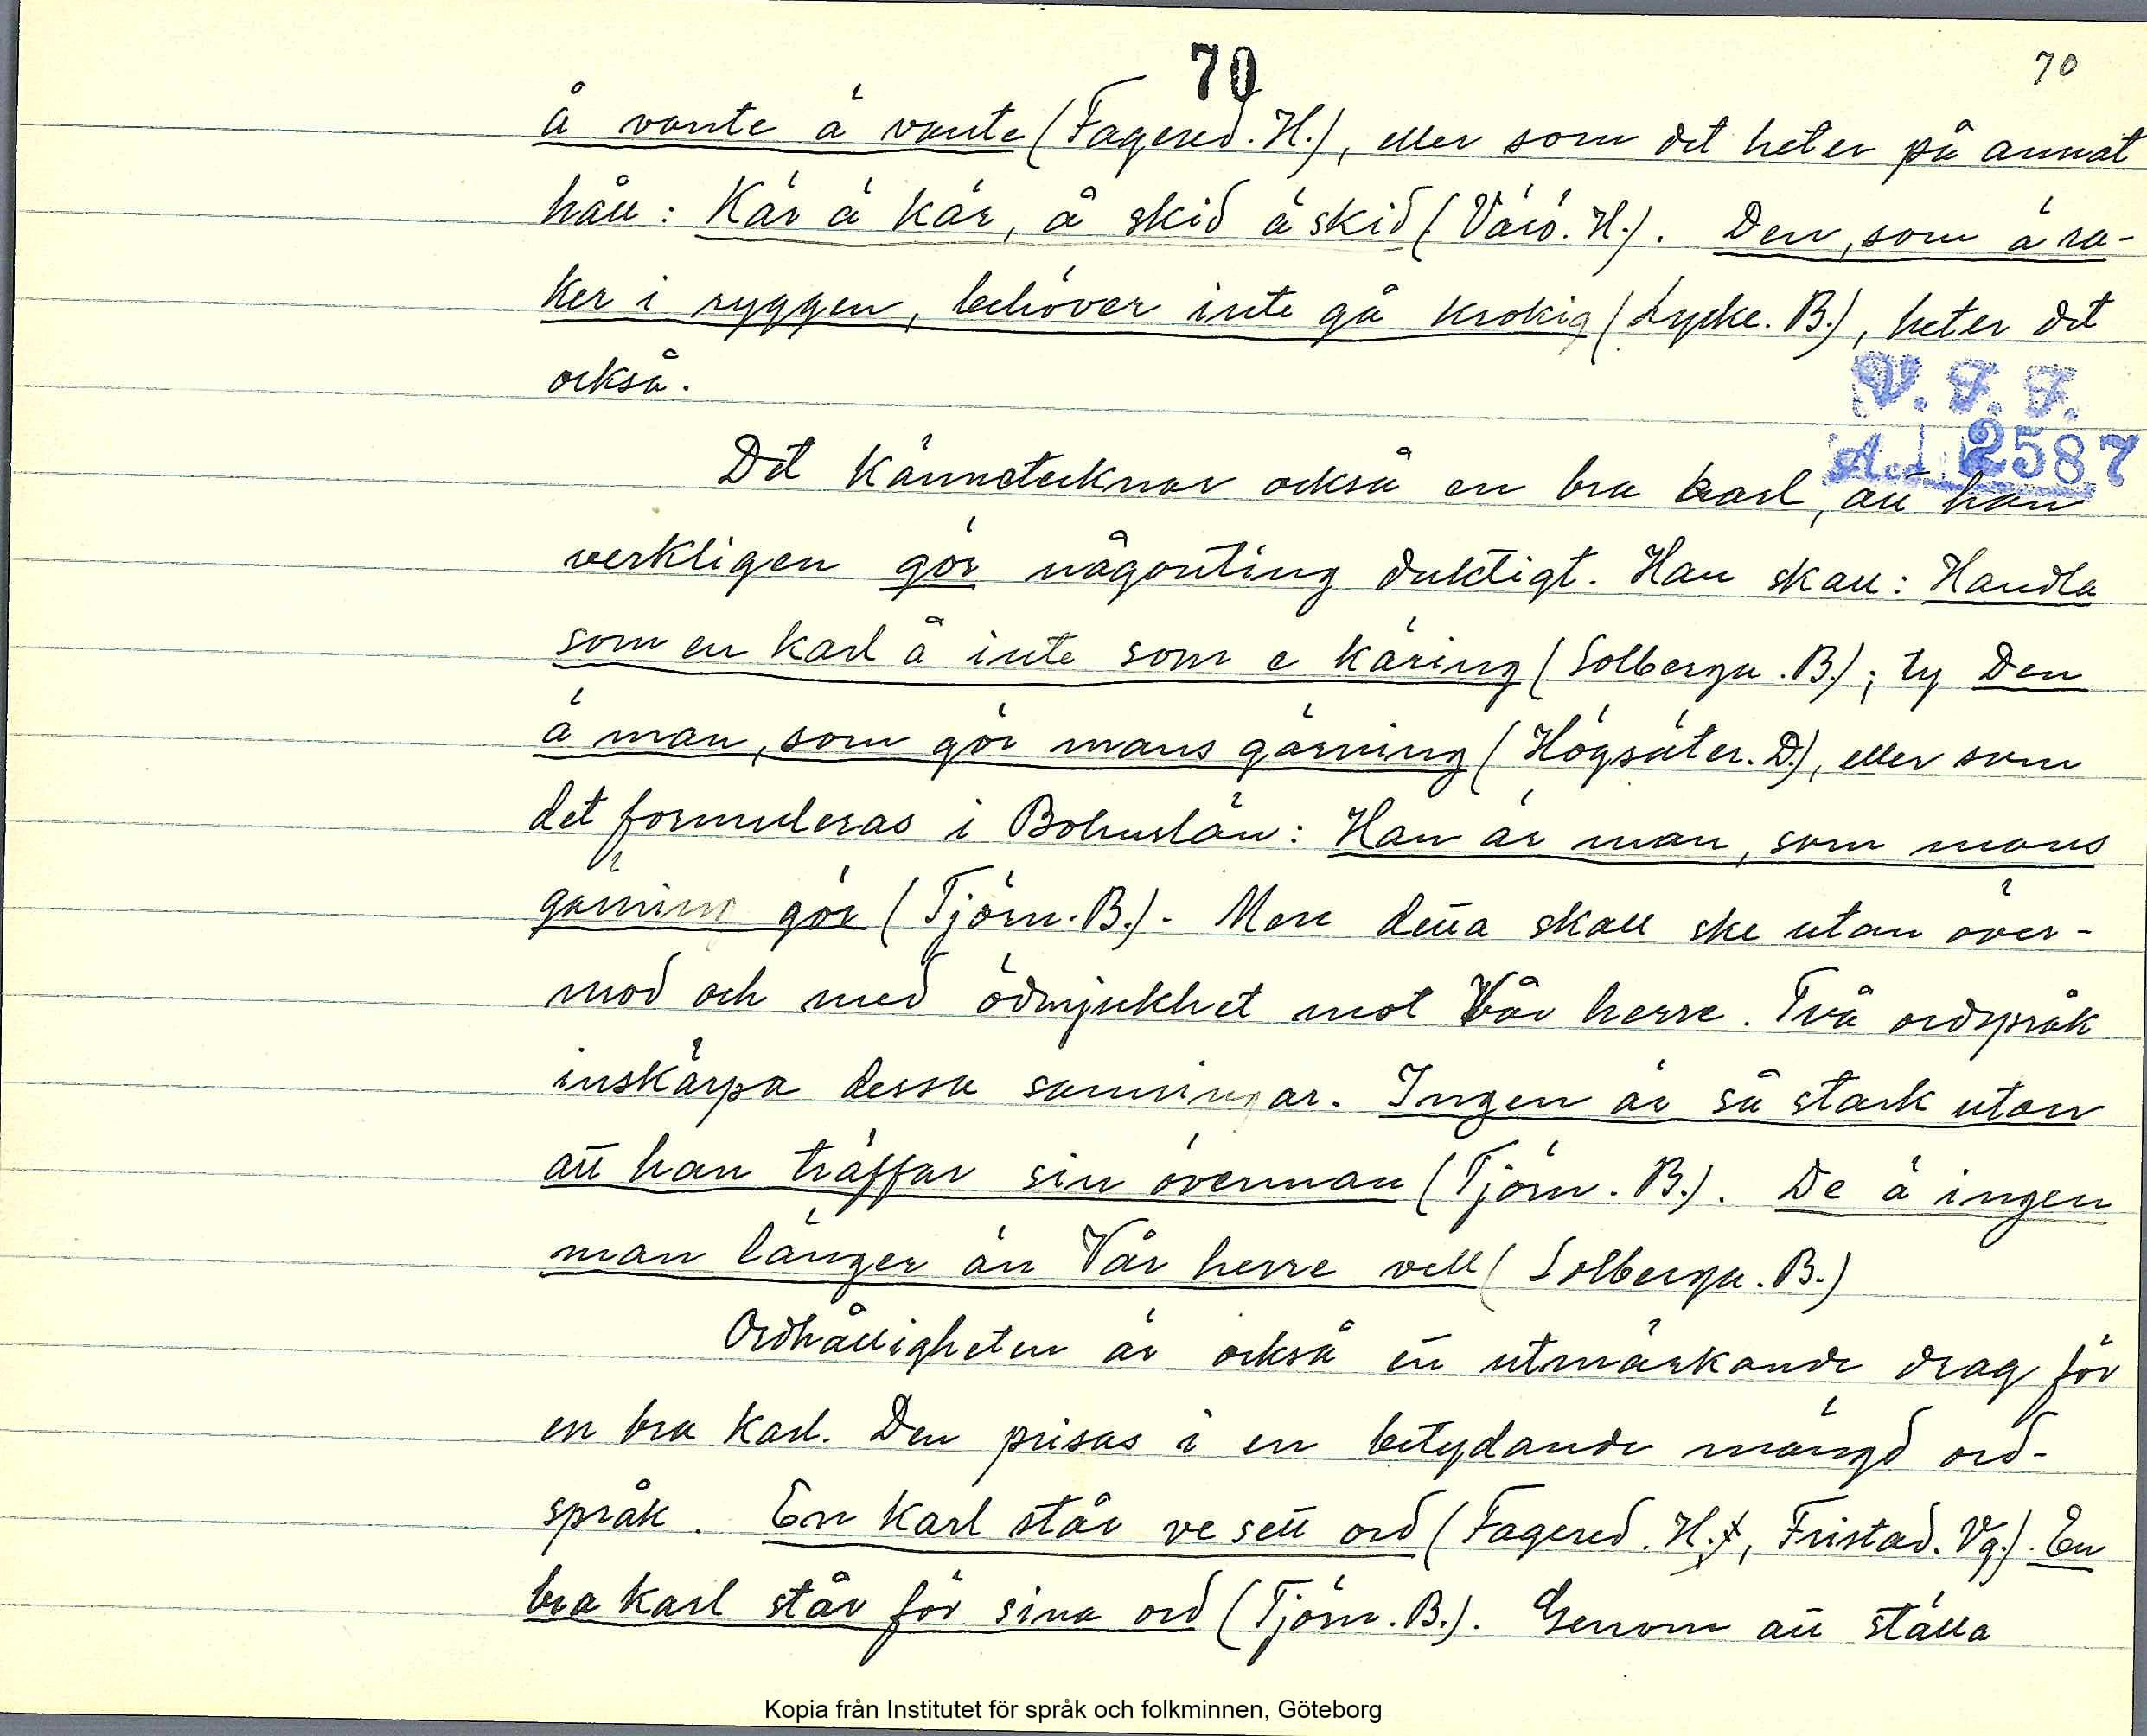 70
70
å vante ä vante (Fagered. H.), eller som det heter på annat
håll: Kär ä kär, å skid ä skid (Värö. H.). Den, som ä ra-
ker i ryggen, behöver inte gå krokig (Lycke. B.), heter det
också.
V. F. F.
Acc. 2587
Det kännetecknar också en bra karl, att han
verkligen gör någonting duktigt. Han skall: Handla
som en karl å inte som e käring (Solberga. B.); ty Den
ä man, som gör mans gärning (Högsäter. D.), eller som
det formuleras i Bohuslän: Han är man, som mans
gärning gör (Tjörn. B.). Men detta skall ske utan över-
mod och med ödmjukhet mot Vår herre. Två ordspråk
inskärpa dessa sanningar. Ingen är så stark utan
att han träffar sin överman (Tjörn. B.). De ä ingen
man länger än Vår herre vell (Solberga. B.)
Ordhålligheten är också ett utmärkande drag för
en bra karl. Den prisas i en betydande mängd ord-
språk. En karl står ve sett ord (Fagered. H., Fristad. Vg.). En
bra karl står för sina ord (Tjörn. B.). Genom att ställa
Kopia från Institutet för språk och folkminnen, Göteborg